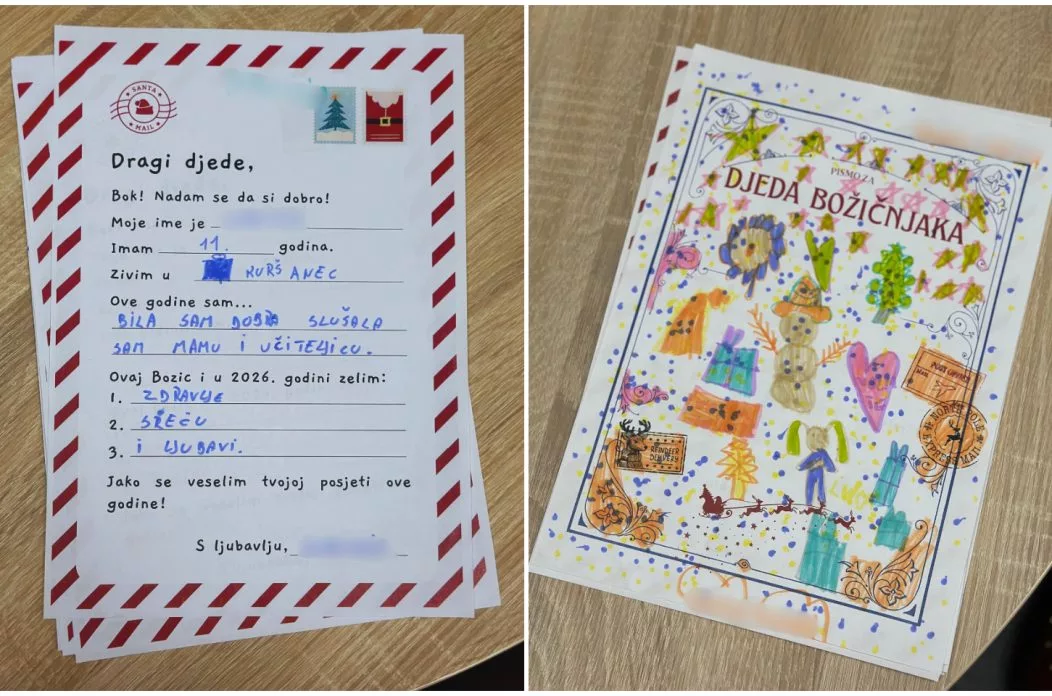 SANTA
MAIL
Dragi djede,
Bok! Nadam se da si dobro!
Moje ime je
Imam 11. godina.
Zivim u KURŠANEC
Ove godine sam...
BILA SAM DOBRA SLUŠALA
SAM MAMU I UČITELJICU.
Ovaj Bozic i u 2026. godini zelim:
1. ZDRAVLJE
2. SREĆU
3. i LJUBAVI.
Jako se veselim tvojoj posjeti ove
godine!
S ljubavlju,
PISMO ZA
DJEDA BOŽIĆNJAKA
POST OFFICE
MAIL
NORTH POLE
EXPRESS MAIL
REINDEER
DELIVERY